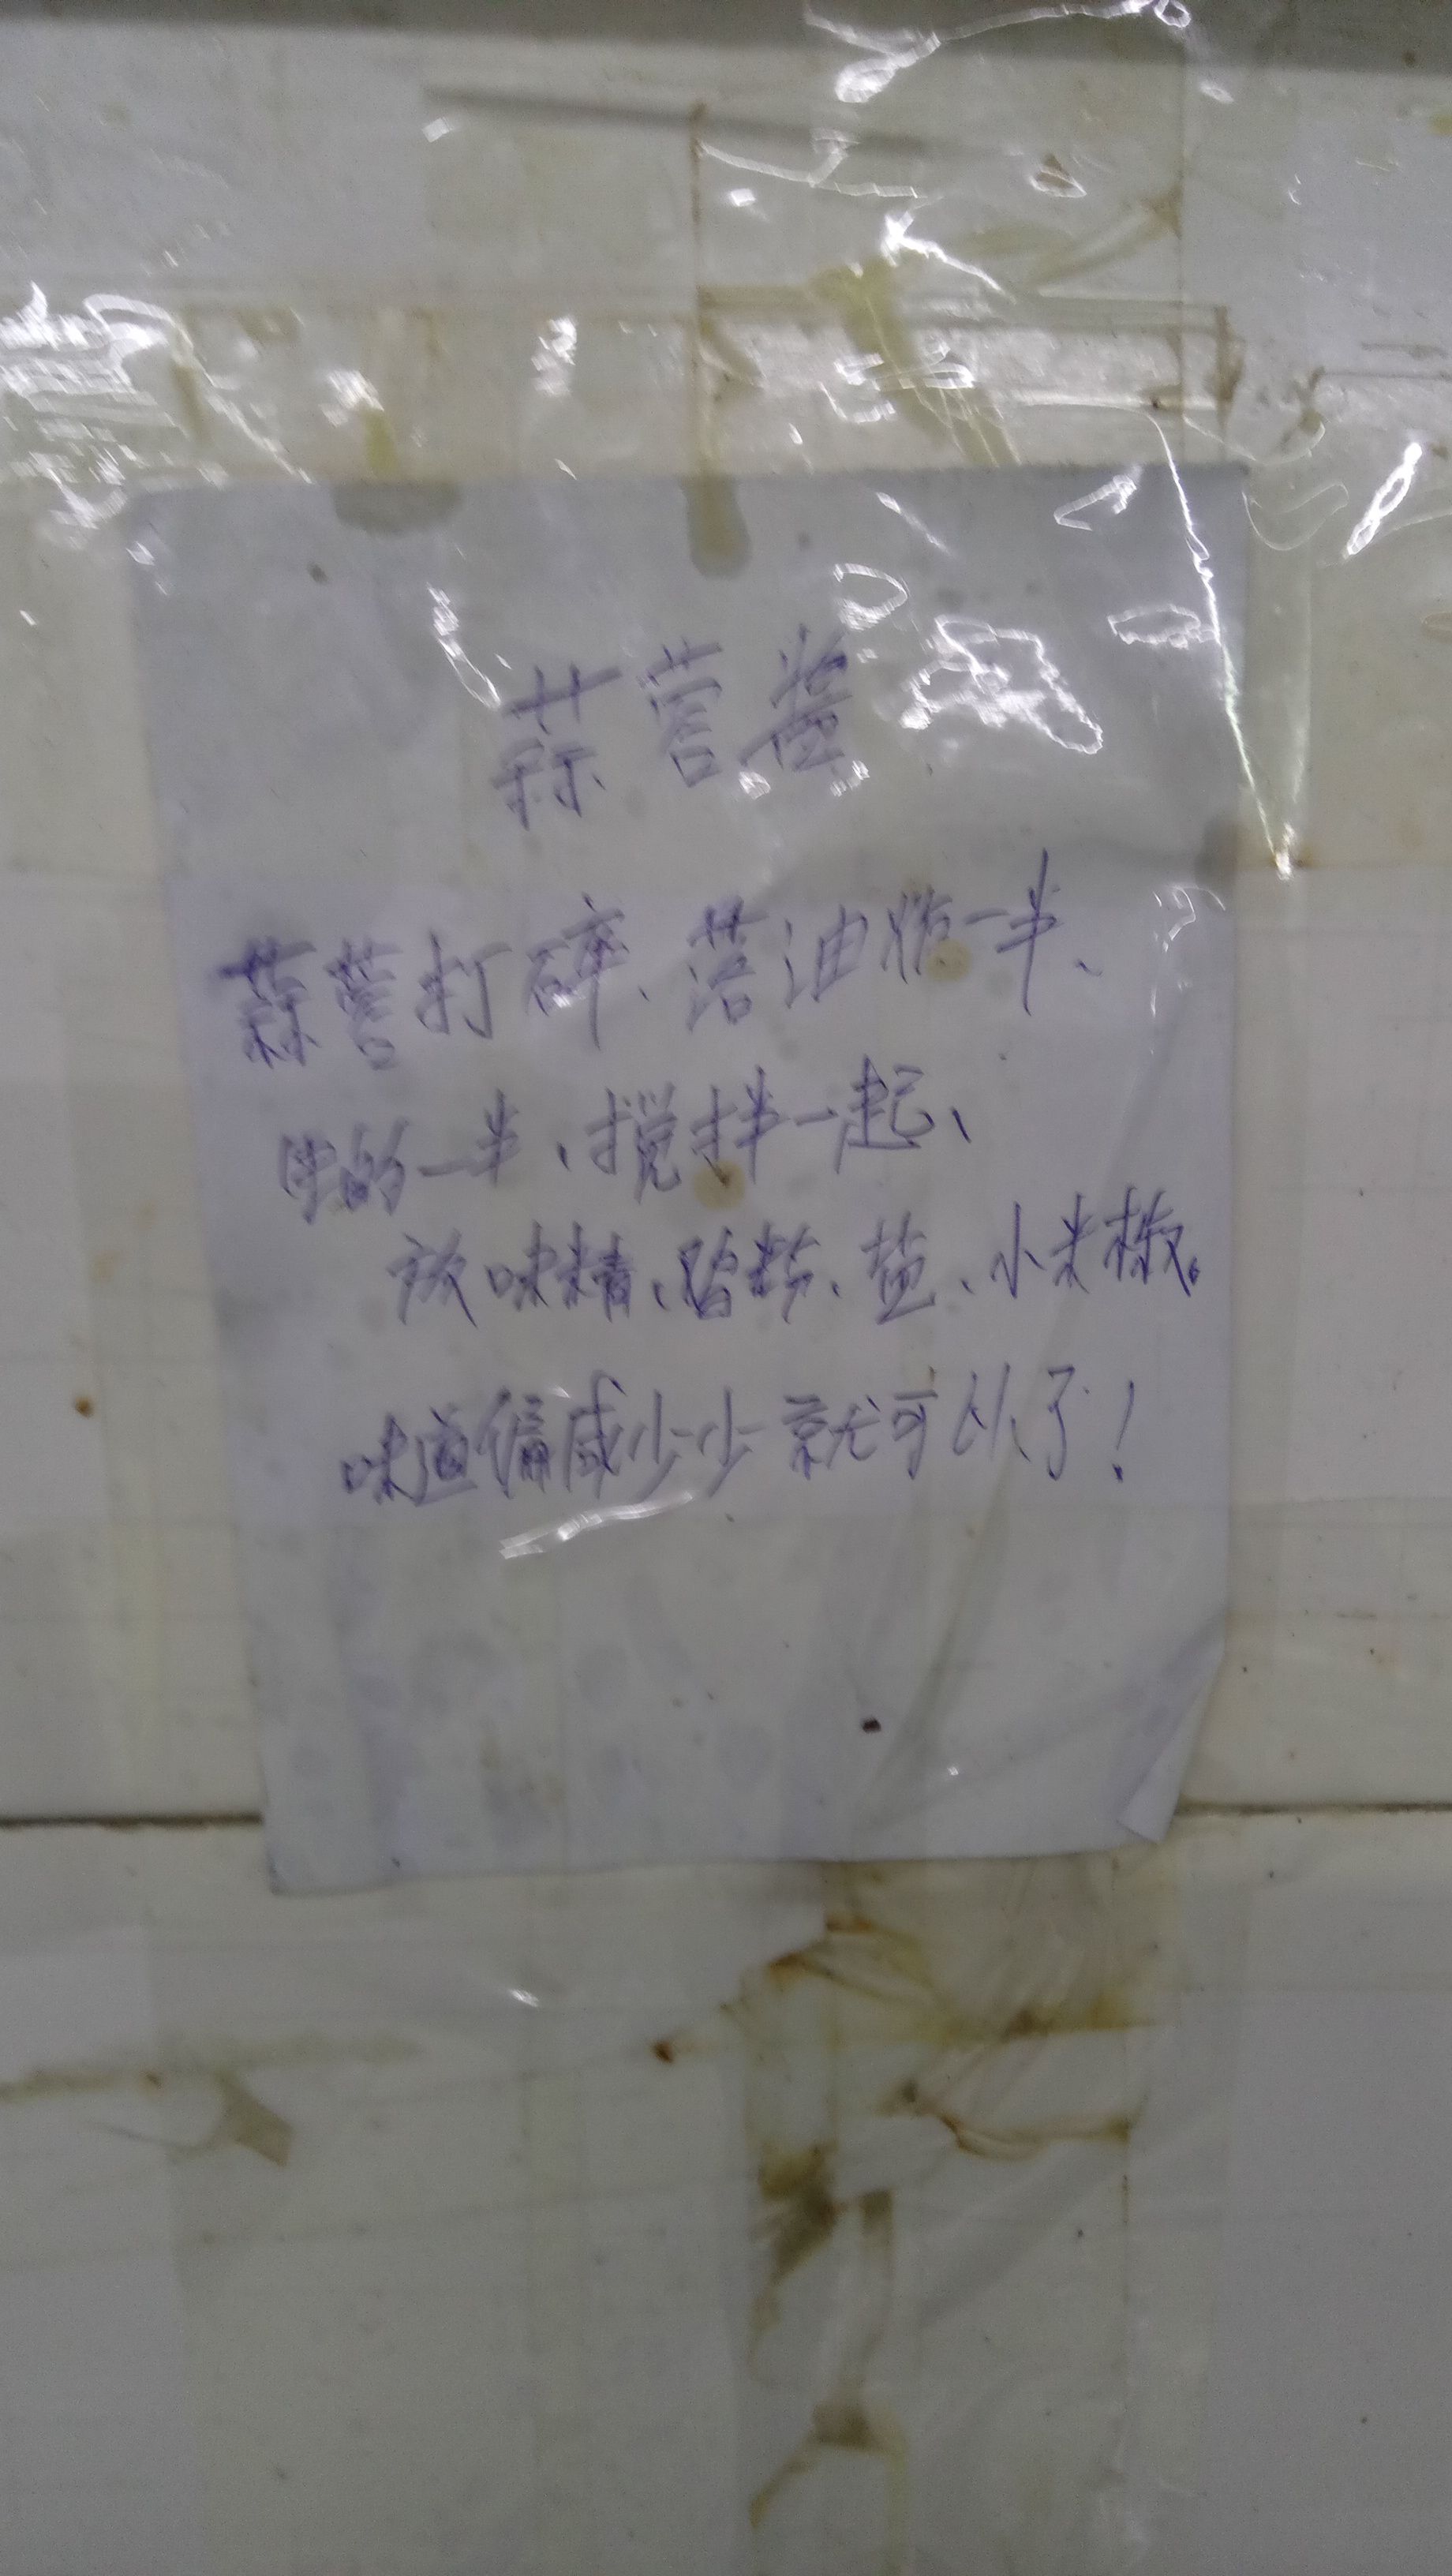 蒜蓉酱
蒜蓉打碎、落油炸一半、
生的一半、搅拌一起、
放味精、鸡粉、盐、小米椒。
味道偏咸少少就可以了！